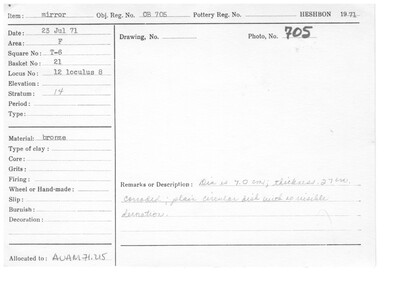 Item: mirror Obj. Reg. No. OB 705 Pottery Reg. No. HESHBON 1971
Date: 23 Jul 71 Drawing, No. Photo, No. 705
Area: F
Square No: T-6
Basket No: 21
Locus No: 12 loculus 8
Elevation:
Stratum: 14
Period:
Type:
Material: bronze
Type of clay:
Core:
Grits:
Firing:
Wheel or Hand-made:
Slip:
Burnish:
Decoration:
Remarks or Description: Dia. is 7.0 cm; thickness .27 cm
corroded; plain circular disk with no visible
decoration.
Allocated to: AUAM.71.